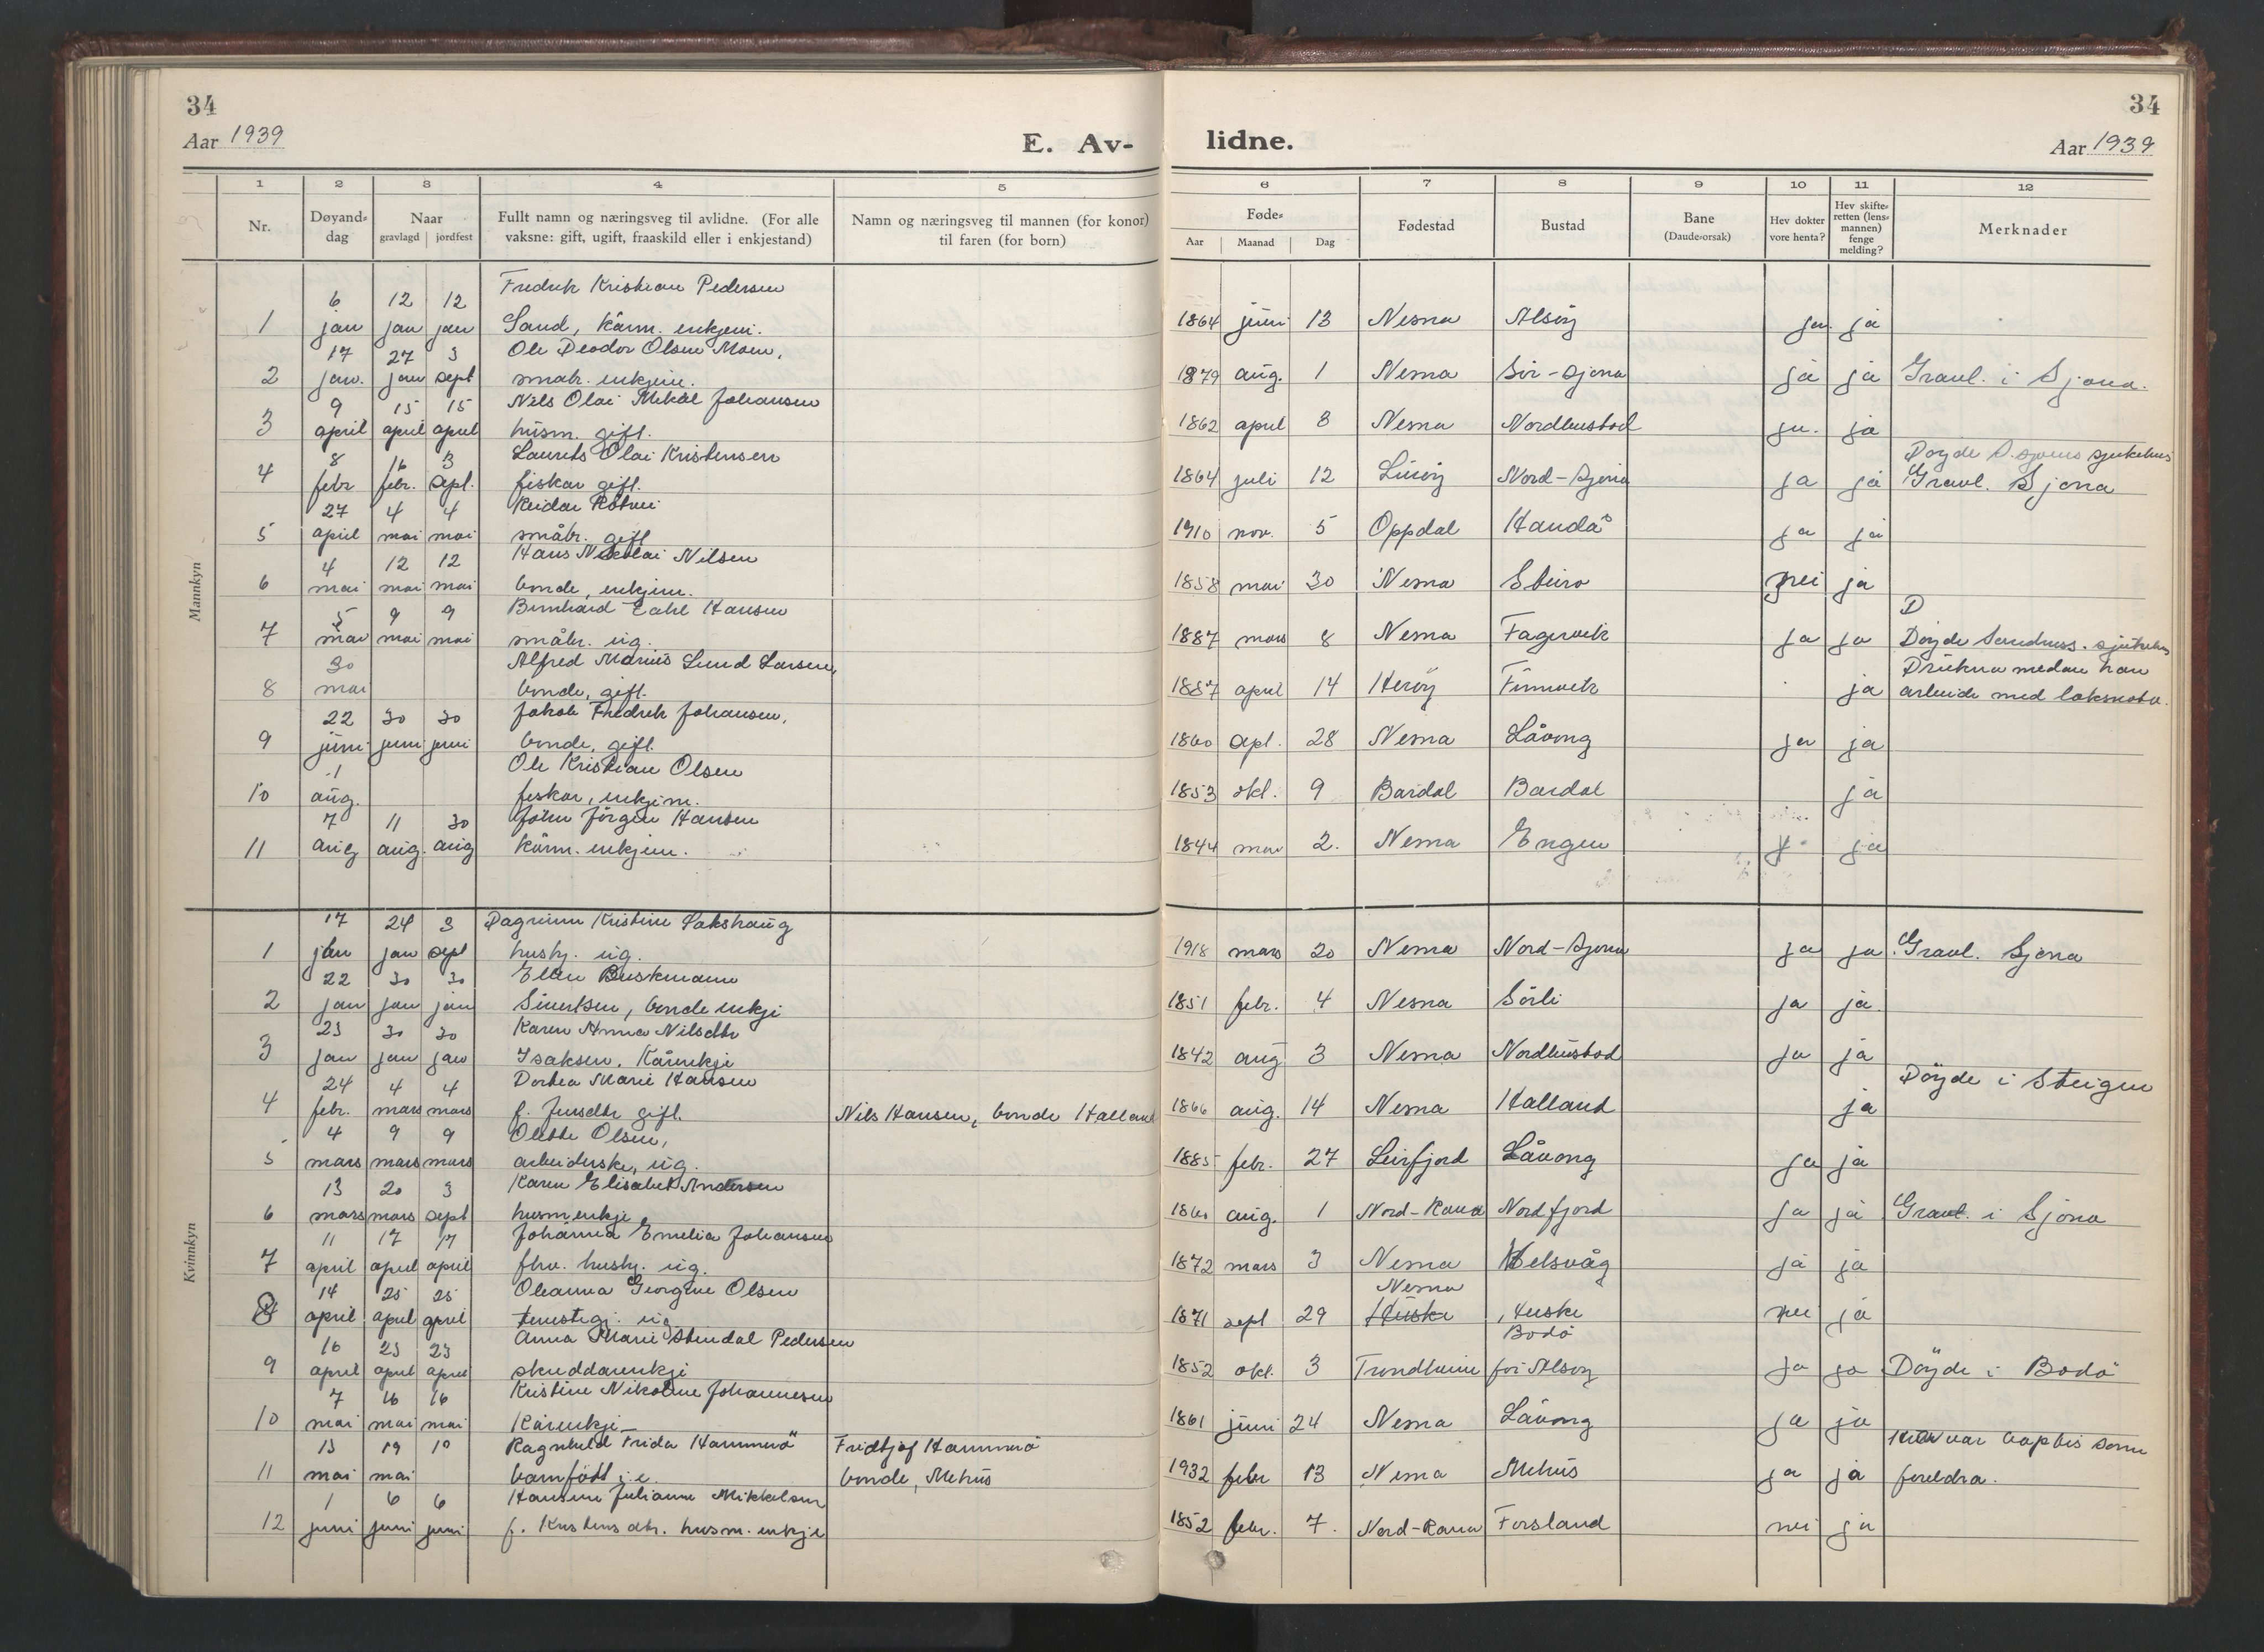 34
Aar 1939
E. Av-
1 2 3 4 5
Nr.
Døyand-dag
Naar
gravlagd | jordfest
Fullt namn og næringsveg til avlidne. (For alle
vaksne: gift, ugift, fraaskild eller i enkjestand)
Namn og næringsveg til mannen (for konor)
til faren (for born)
Mannkyn
6 12 12 Fredrik Kristian Pedersen
1 jan jan jan Sand, kårm. enkjem.
17 27 3 Ole Peodor Olsen Moen,
2 jan. jan sept småbr. enkjem.
9 15 15 Nils Olai Mikal Johansen
3 april april april husm. gift.
8 16 3 Laurits Olai Kristensen
4 febr febr. sept. fiskar gift.
27 4 4 Reidar
5 april mai mai småbr. gift
4 12 12 Hans Nikolai Nilsen
6 mai mai mai bonde, enkjem.
5 9 9 Bernhard Hansen
7 mai mai mai småbr. ug.
30 Alfred Marius Lund Larsen,
8 mai bonde, gift.
22 30 30 Jakob Fredrik Johansen,
9 juni juni juni bonde, gift.
1 Ole Kristian Olsen
10 aug. fiskar, enkjem.
7 11 30 Johan Jörgen Hansen
11 aug aug. aug kårm. enkjem.
Kvinnkyn
17 24 3 Dagrunn Kristine Sakshaug
1 jan jan sept hushj. ug.
22 30 30 Ellen Buskmann
2 jan jan jan Sivertsen, bonde enkje
23 30 30 Karen Anna Nilsdtr
3 jan jan jan Isaksen. Kårenkje
24 4 4 Dortea Marie Hansen
4 febr. mars mars f. Jensdtr gift. Nils Hansen, bonde Halland
4 9 9 Olette Olsen,
5 mars mars mars arbeiderske, ug.
13 20 3 Karen Elisabet Andersen
6 mars mars sept husm enkje
11 17 17 Johanna Emelia Johansen
7 april april april fhv. hushj. ug.
14 25 25 Oleanna Georgine Olsen
8 april april april tenestegj. ug
16 23 23 Anna Marie Stendal Pedersen
9 april april april skreddarenkje
7 16 16 Kristine Nikoline Johannesen
10 mai mai mai Kårenkje
13 19 19 Ragnhild Frida Hammerö Fridtjof Hammerö
11 mai mai barnfödt i.e. bonde, Mehus
1 6 6 Hansine Juliane Mikkelsen
12 juni juni juni f. Kristensdtr. husm. enkje
34
lidne.
Aar 1939
6 7 8 9 10 11 12
Føde-
Aar | Maanad | Dag
Fødestad
Bustad
Bane
(Daude-orsak)
Hev dokter
vore henta?
Hev skifte-
retten (lens-
mannen)
fenge
melding?
Merknader
1864 juni 13 Nesna Alsöy ja ja
1879 aug. 1 Nesna Sör-Sjona ja ja Gravl. i Sjona.
1862 april 8 Nesna Nordhustad ja. ja
Döyde sjukehus
1864 juli 12 Luröy Nord-Sjona ja ja Gravl. Sjona
1910 nov. 5 Oppdal Handå ja ja
1858 mai 30 Nesna Steiro nei ja
D
1887 mars 8 Nesna Fagervik ja ja Döyde Sandness. sjukehus
Drukna medan han
1887 april 14 Heröy Finnvik ja arbeide med laksenota.
1860 apl. 28 Nesna Låvong ja ja
1853 okt. 9 Bardal Bardal ja
1844 mai 2. Nesna Engen ja
1918 mars 20 Nesna Nord-Sjona ja ja Gravl. Sjona
1851 febr. 4 Nesna Sörli ja ja.
1842 aug 3 Nesna Nordhustad ja ja
Döyde i Steigen
1866 aug. 14 Nesna Halland ja
1885 febr. 27 Leirfjord Låvong ja ja
1860 aug. 1 Nord-Rana Nordfjord ja ja Gravl. i Sjona
1872 mars 3 Nesna Helsvåg ja ja
Nesna
1871 sept 29 Huske Huske nei ja
Bodö
1852 okt. 3 Trondheim för Alsöy ja ja Döyde i Bodö
1861 juni 24 Nesna Låvong ja ja
var baptis som
1932 febr 13 Nesna Mehus ja ja foreldra.
1852 febr. 7. Nord-Rana Forsland nei ja